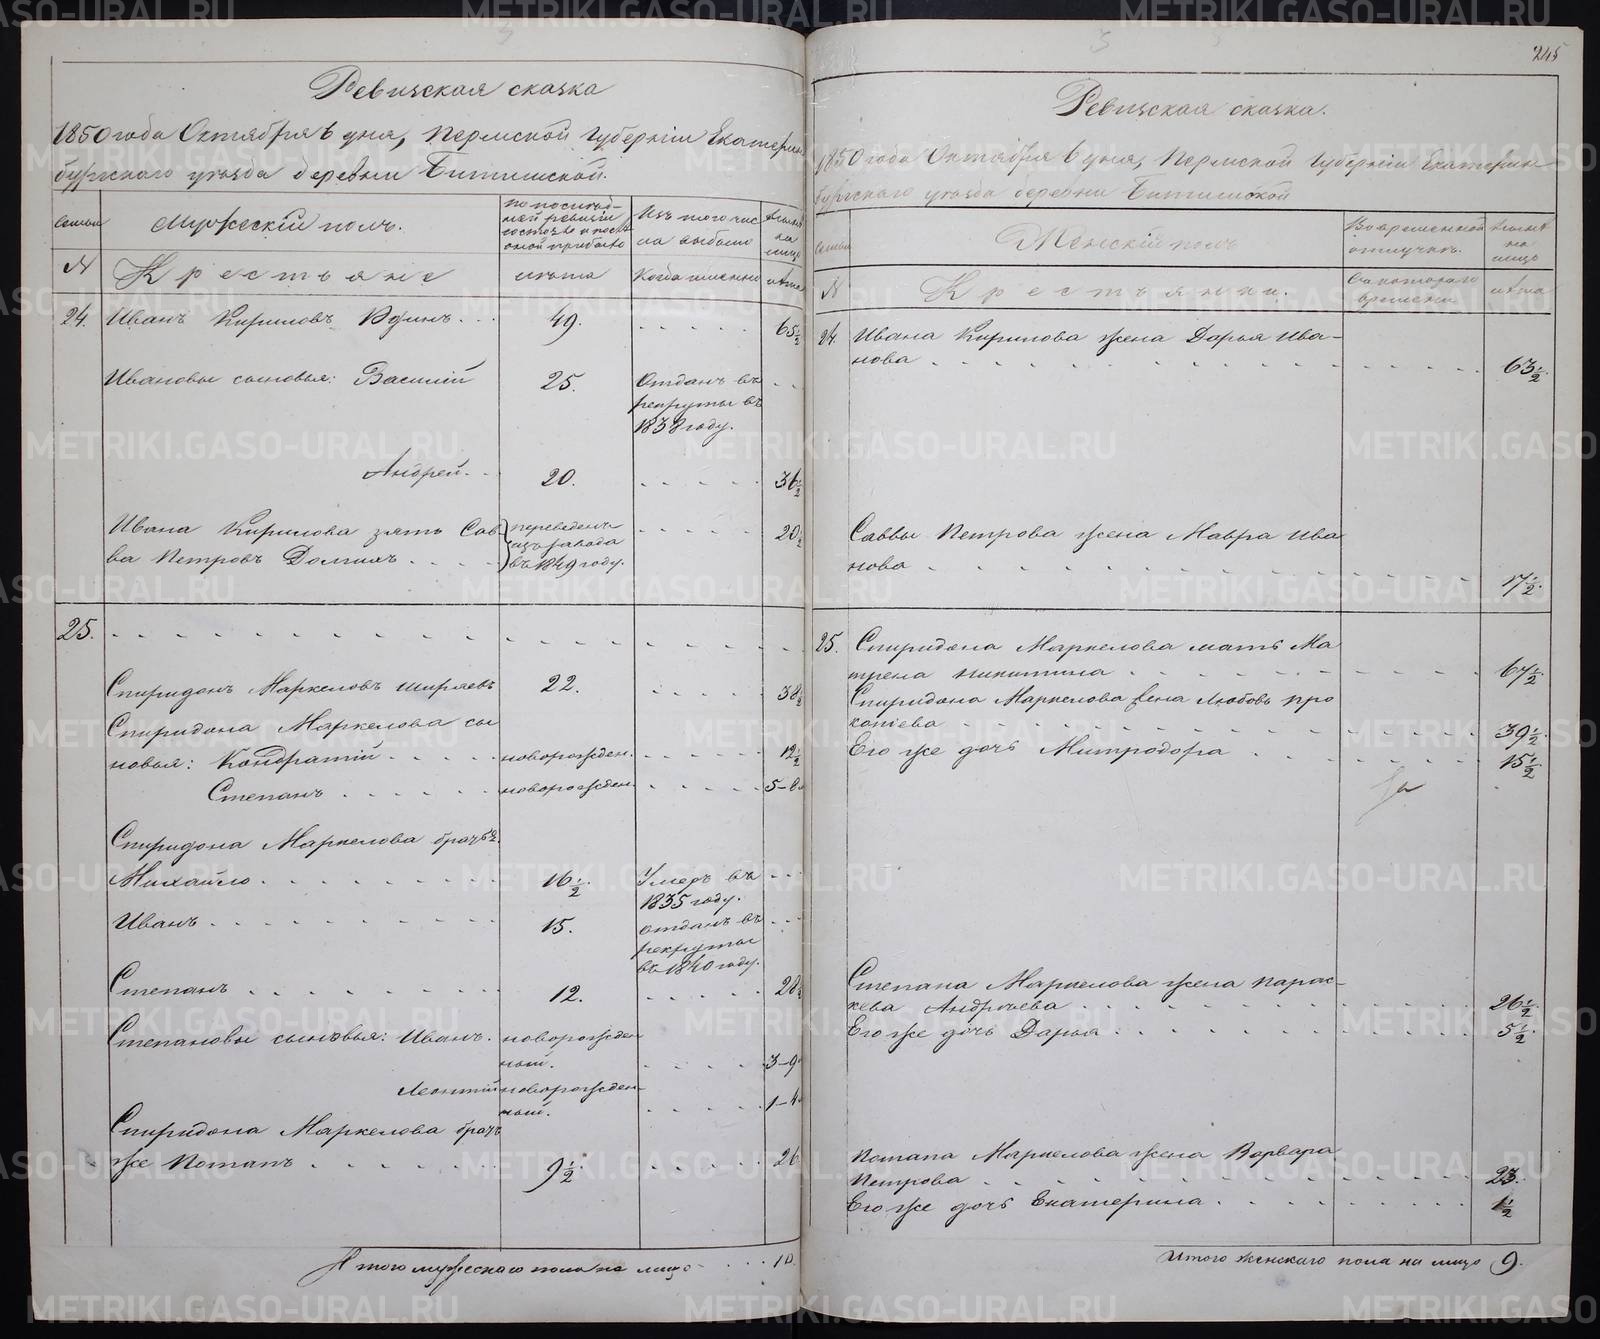 Ревизская сказка
1850 года Октября 6 дня, Пермской Губерніи Екатерин
бургскаго уѣзда деревни Битимской.
Семьи
Мужескій полъ.
по послѣд-
ней ревизіи
состояло и послѣ
оной прибыло
Изъ того чис
ла выбыло
Нынѣ
на
лицо
№
Крестьяне
лѣта
Когда именно
лѣта
24. Иванъ Кириловъ 49. 65½
Ивановы сыновья: Василій 25. Отданъ въ
рекруты въ
1838 году.
Андрей. 20. 36½
Ивана Кирилова зять Сав-
ва Петровъ переведенъ
изъ завода
въ 1849 году. 20½
25.
Спиридонъ Маркеловъ Ширяевъ 22. 38½
Спиридона Маркелова сы
новья: Кондратій новорожден. 12½
Степанъ новорожден. 5-8
Спиридона Маркелова братья.
Михайло 16½. Умеръ въ
1835 году.
Иванъ 15. отданъ въ
рекруты
въ 1840 году.
Степанъ 12. 28½
Степановы сыновья: Иванъ. новорожден
ный. 3-9
Леонтій новорожден-
ный. 1-4
Спиридона Маркелова братъ
же Потапъ 9½. 26
Итого мужескаго пола на лицо 10
245
Ревизская сказка.
1850 года Октября 6 дня, Пермской Губерніи Екатерин
бургскаго уѣзда деревни Битимской
Семьи
Женскій полъ
Во временной
отлучкѣ.
Нынѣ
на
лицо
№
Крестьянки.
Съ котораго
времени
лѣта
24. Ивана Кирилова жена Дарья Ива-
нова 63½.
Саввы Петрова жена Мавра Ива
нова 17½.
25. Спиридона Маркелова мать Ма
трена Никитина 67½
Спиридона Маркелова жена Любовь Про
копіева 39½
Его же дочь Митродора 15½
Степана Маркелова жена Парас-
кева Андреева 26½
Его же дочь Дарья 5½
Потапа Маркелова жена Варвара
Петрова 23.
Его же дочь Екатерина 1½
Итого женскаго пола на лицо 9.
METRIKI.GASO-URAL.RU